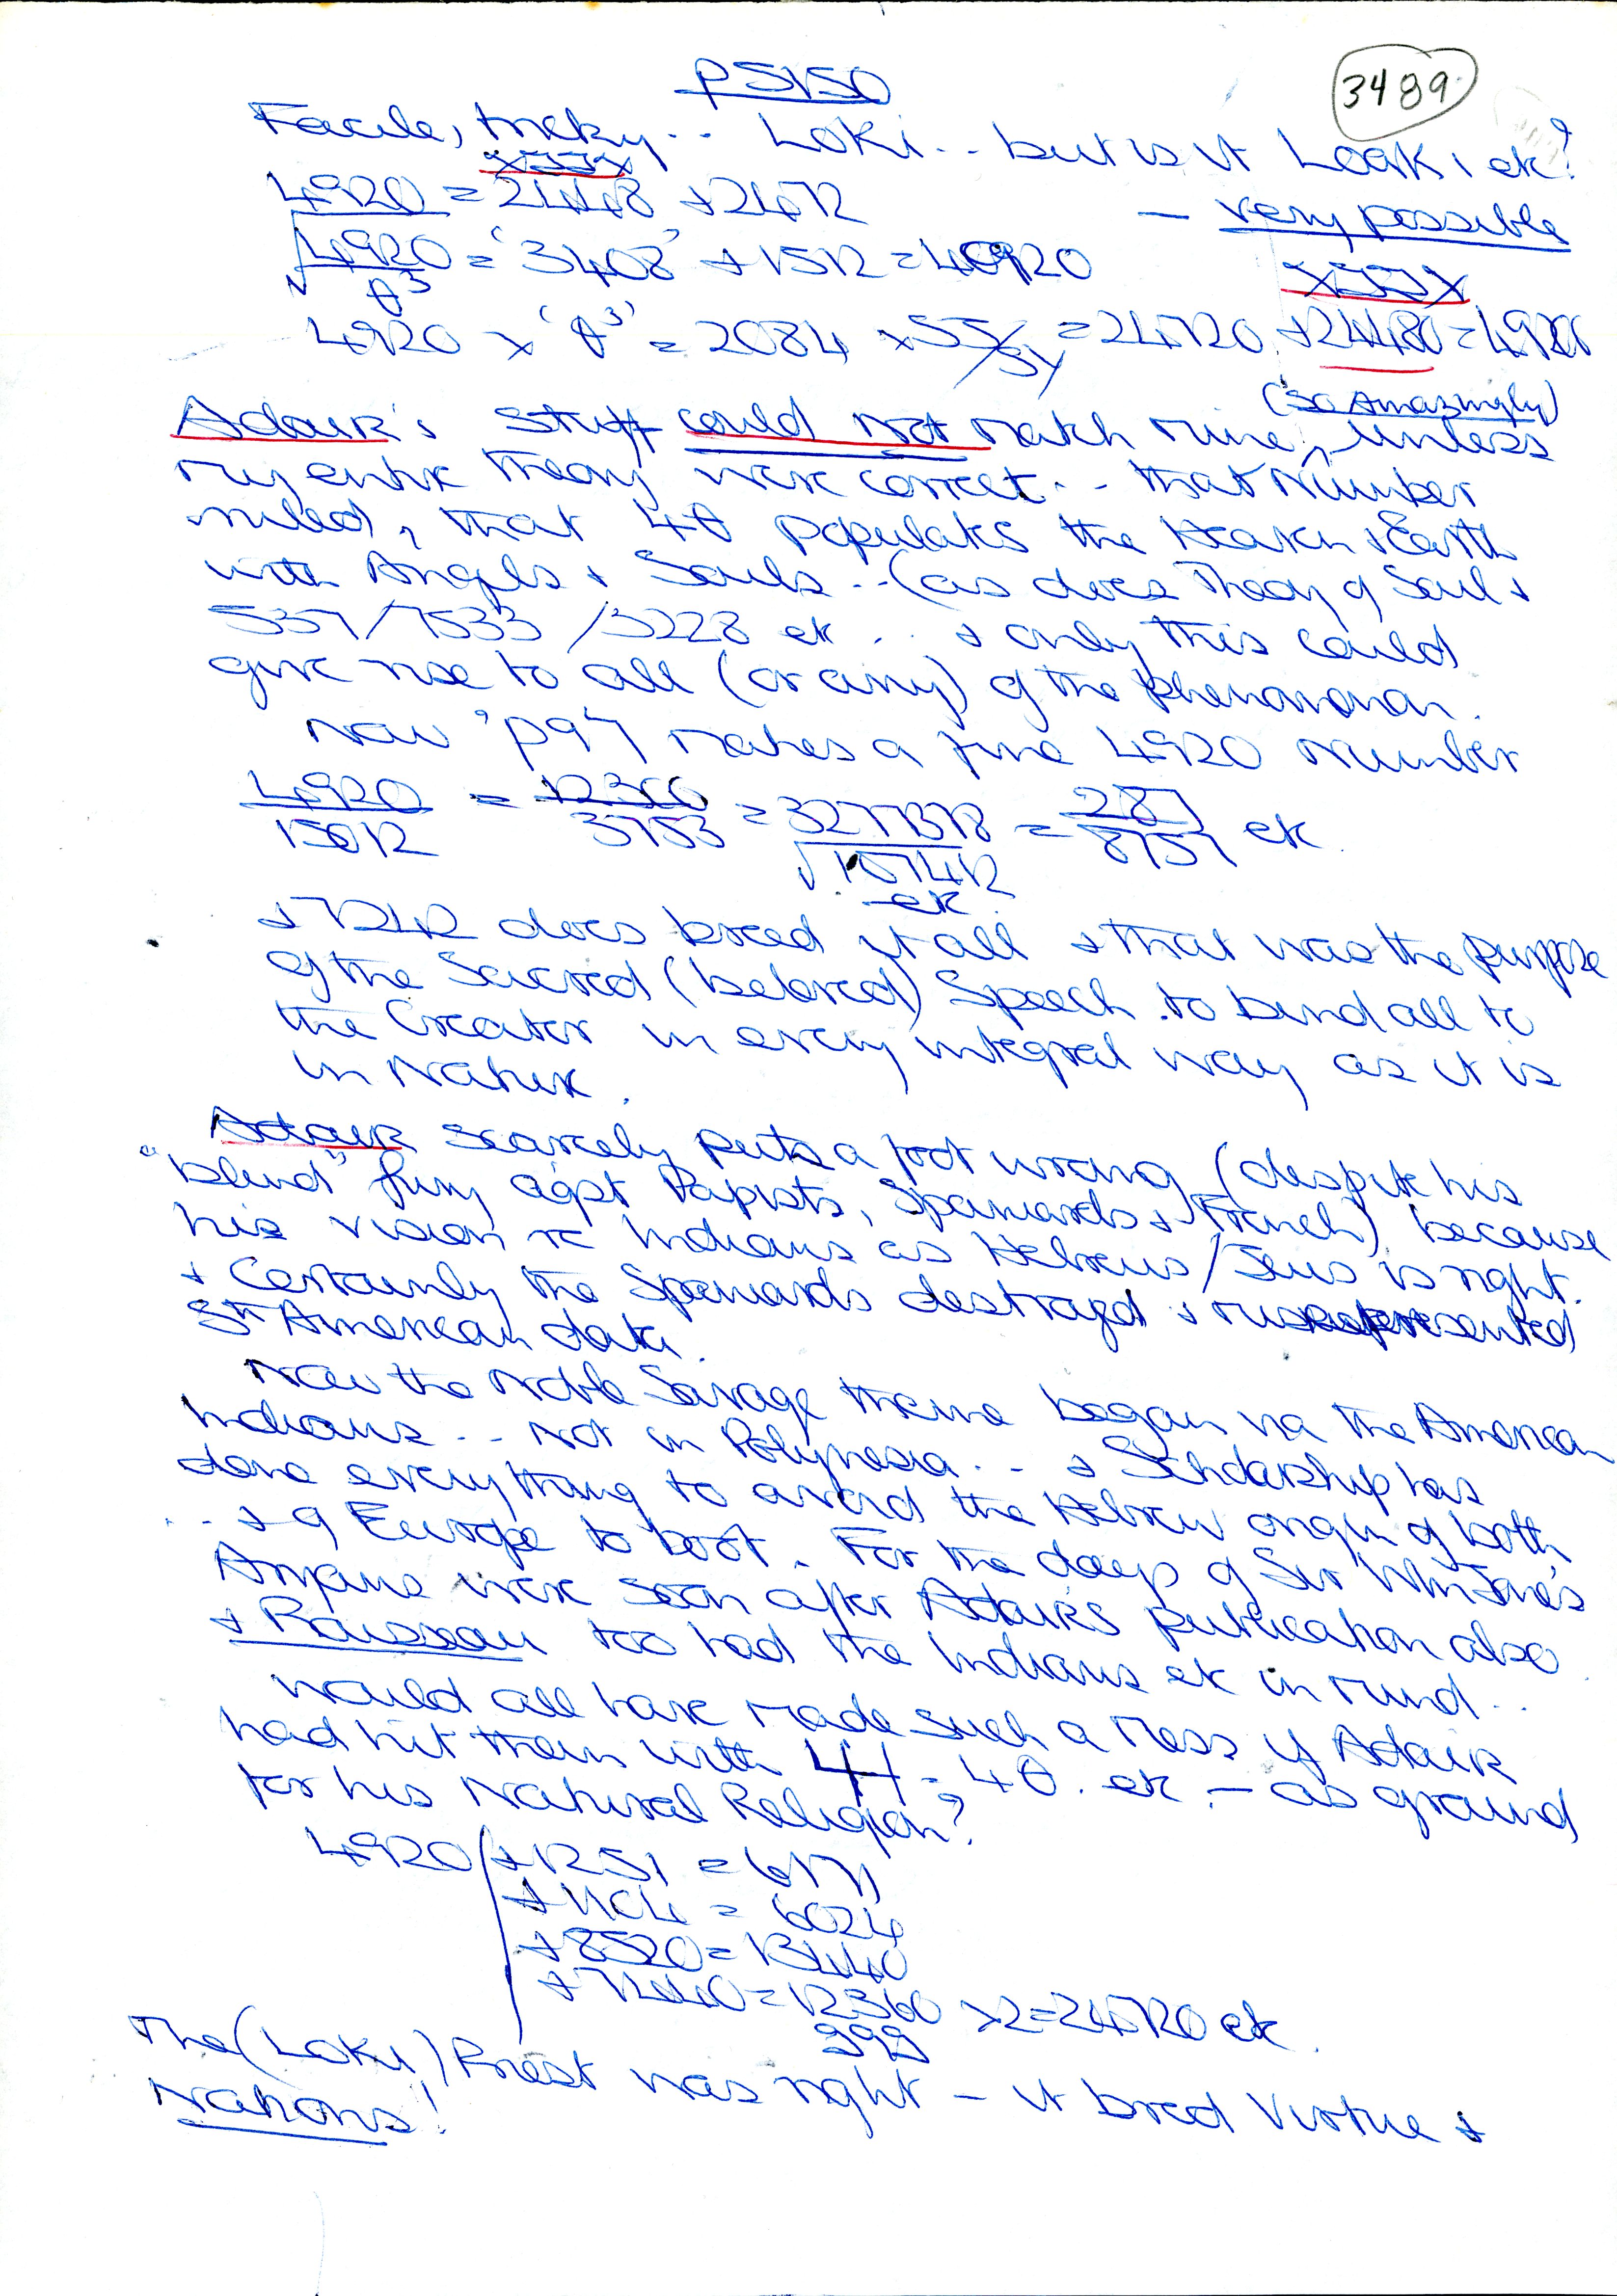 P5150
3489
Facile, tricky .. Loki .. but is it Loak, etc?
4920 = 2448 + 2472
— very possible
√4920/θ³ = '3408' + 1512 = 4920
4920 x 'θ³' = 2084 x 55/54 = 24720 + 24480 = 4920
(so Amazingly)
Adair's stuff could not match mine, unless
my entire theory were correct .. that Number
ruled, that 4θ populates the Heaven & Earth
with Angels & Souls .. (as does Theory of Soul &
537/7533/3228 etc .. & only this could
give rise to all (or any) of the phenomenon.
Now 'P97' makes a fine 4920 number
4920/15012 = 12300/3753 = 327868/√107412 = 287/8757 etc
etc.
& 7212 does breed it all & that was the purpose
of the Sacred (beloved) Speech to bind all to
the Creator in every integral way as it is
in Nature.
Adair scarcely puts a foot wrong (despite his
"blind" fury agst Papists, Spaniards & French) because
his vision re Indians as Hebrews/Jews is right.
& Certainly the Spaniards destroyed & misrepresented
Sth American data.
Now the Noble Savage theme began via the American
Indians .. not in Polynesia .. & Scholarship has
done everything to avoid the Hebrew origin of both
.. & of Europe to boot. For the days of Sir Wm Jones
Aryans were soon after Adair's publication also
& Rousseau too had the Indians etc in mind ..
Would all have made such a mess if Adair
had hit them with 4 = 4θ. etc. — as ground
for his Natural Religion?
4920 + 1251 = 6171
+ 1104 = 6024
+ 8520 = 13440
+ 7440 = 12360 x2 = 24720 etc.
999
The (Loki) Priest was right — it bred Virtue &
Nations!